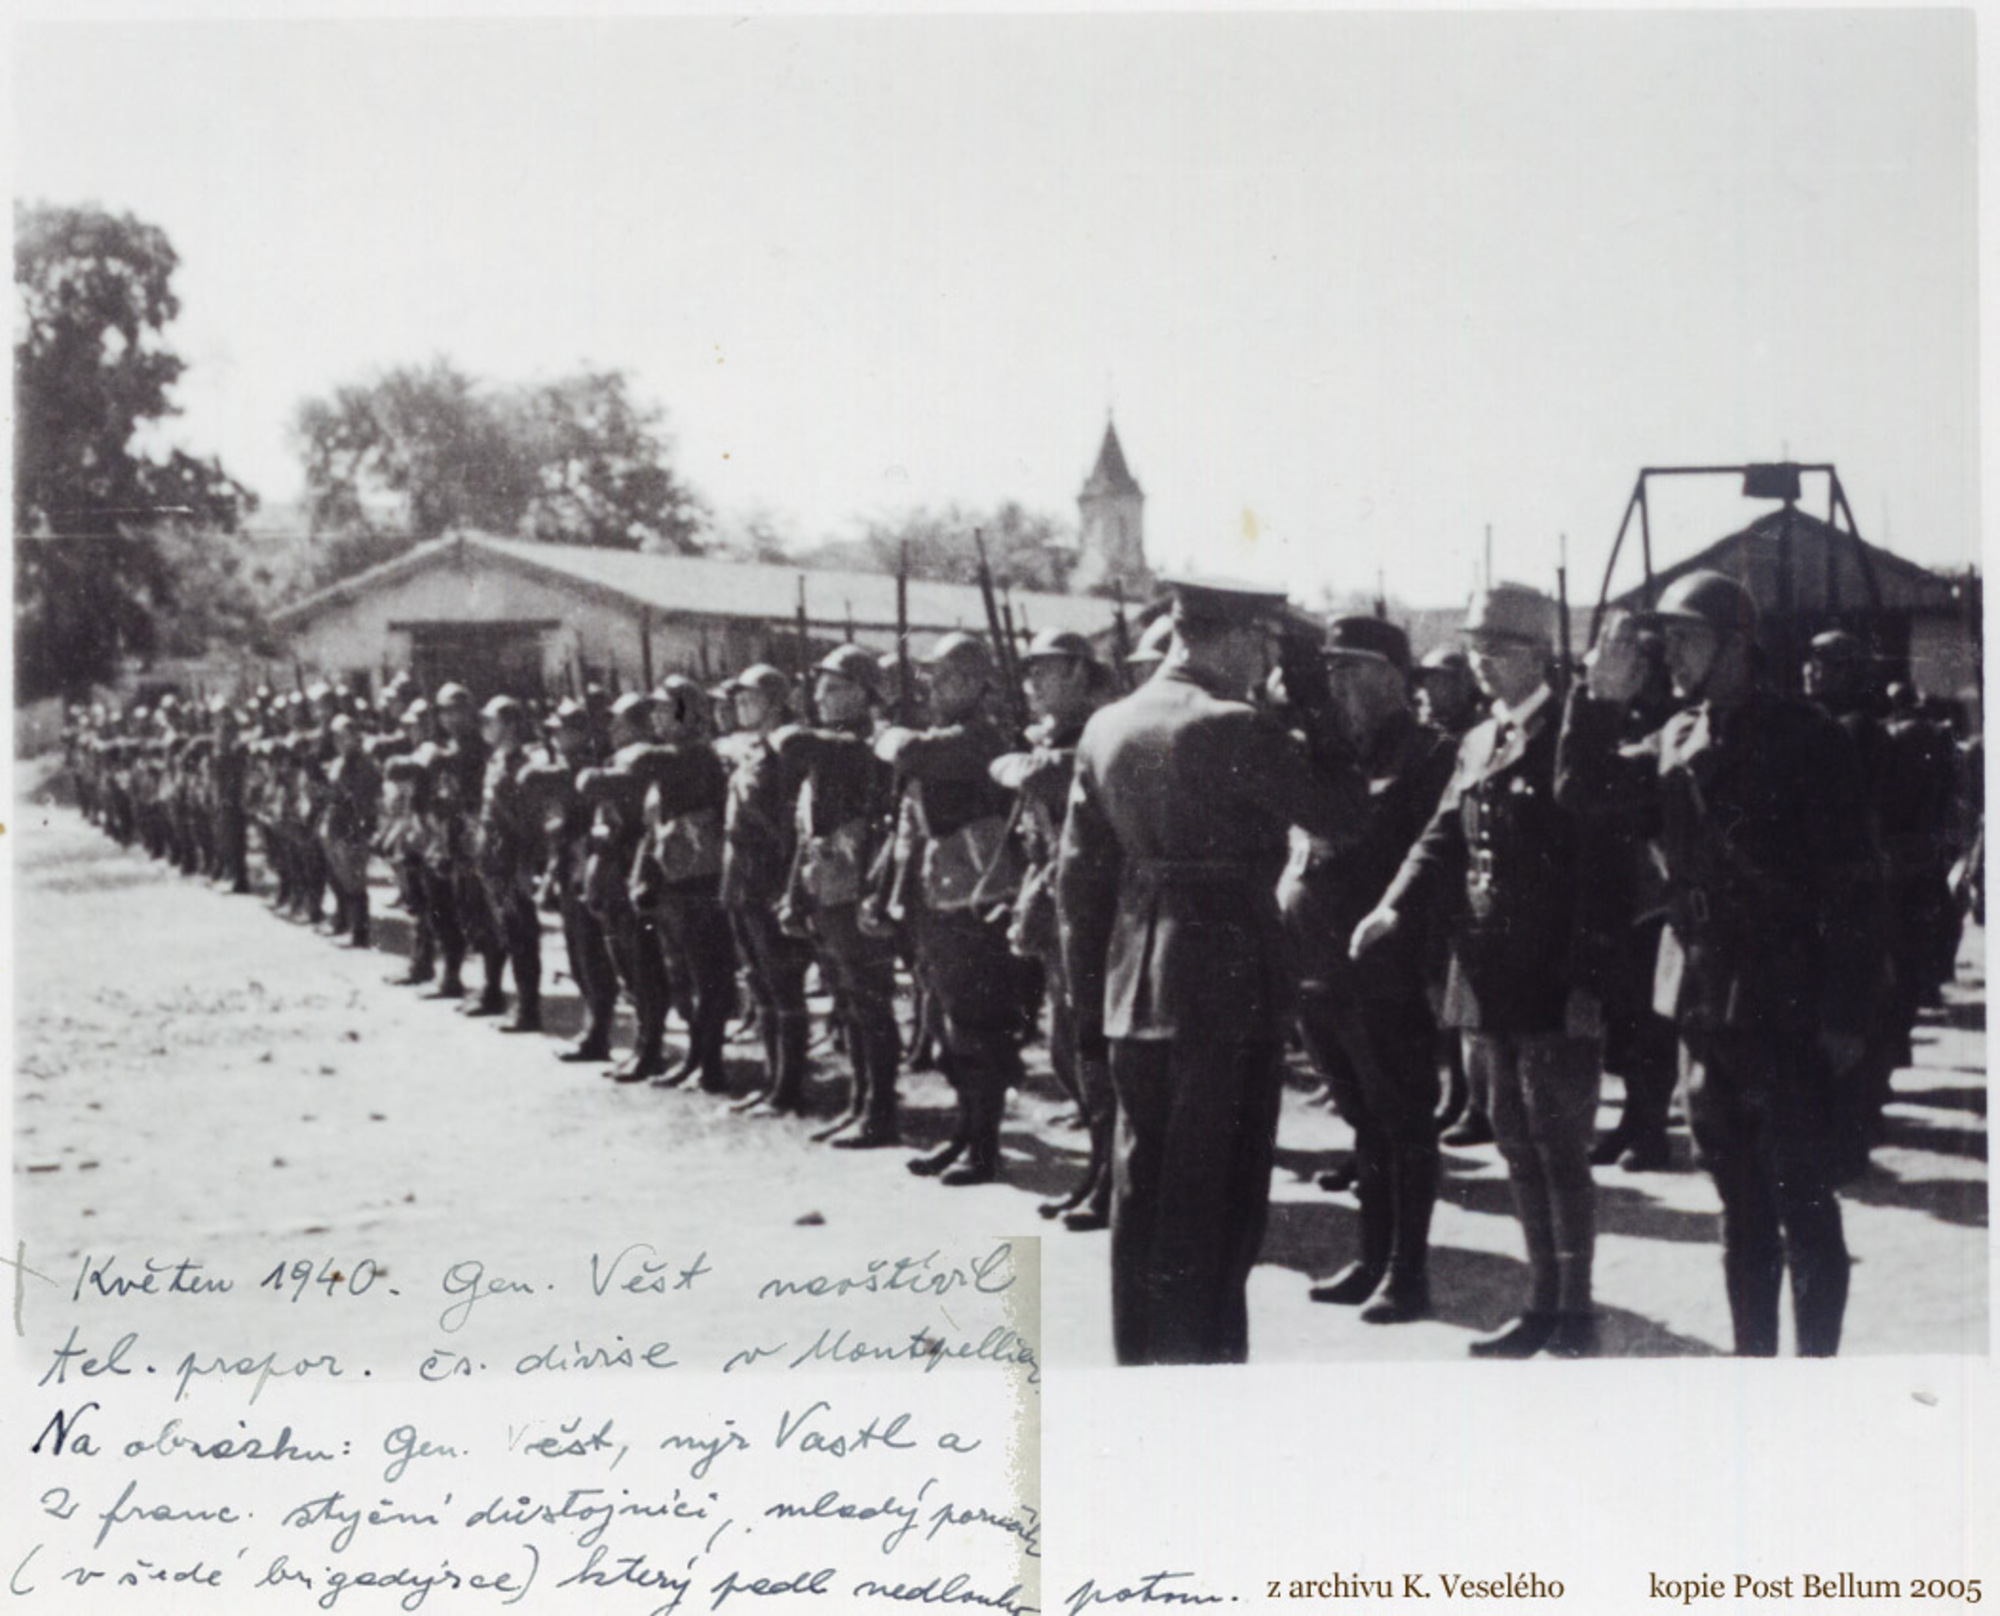 Květen 1940. Gen. Věst navštívil
tel. prapor. čs. divise v Montpellier.
Na obrázku: Gen. Věst, mjr Vastl a
2 franc. styční důstojníci, mladý poručík
(v šedé brigadýrce) který padl nedlouho potom.
z archivu K. Veselého
kopie Post Bellum 2005